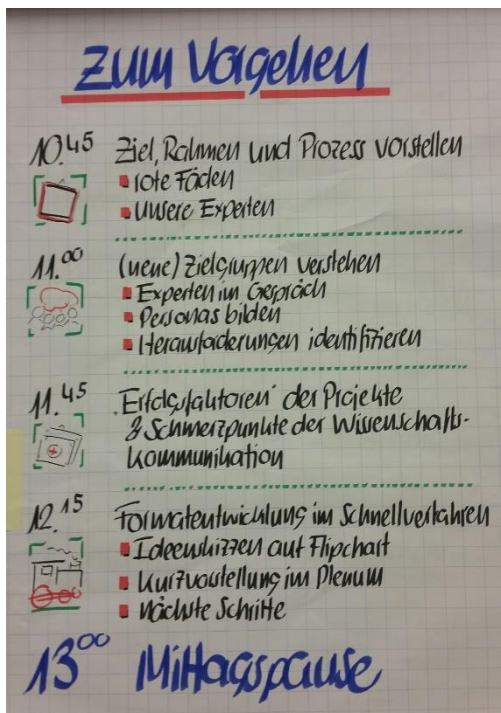 Zum Vorgehen
10.45 Ziel, Rahmen und Prozess vorstellen
rote Fäden
unsere Experten
11.00 (neue) Zielgruppen verstehen
Experten im Gespräch
Personas bilden
Herausforderungen identifizieren
11.45 "Erfolgsfaktoren" der Projekte
& Schmerzpunkte der Wissenschafts-
kommunikation
12.15 Formatentwicklung im Schnellverfahren
Ideenskizzen auf Flipchart
Kurzvorstellung im Plenum
nächste Schritte
13.00 Mittagspause